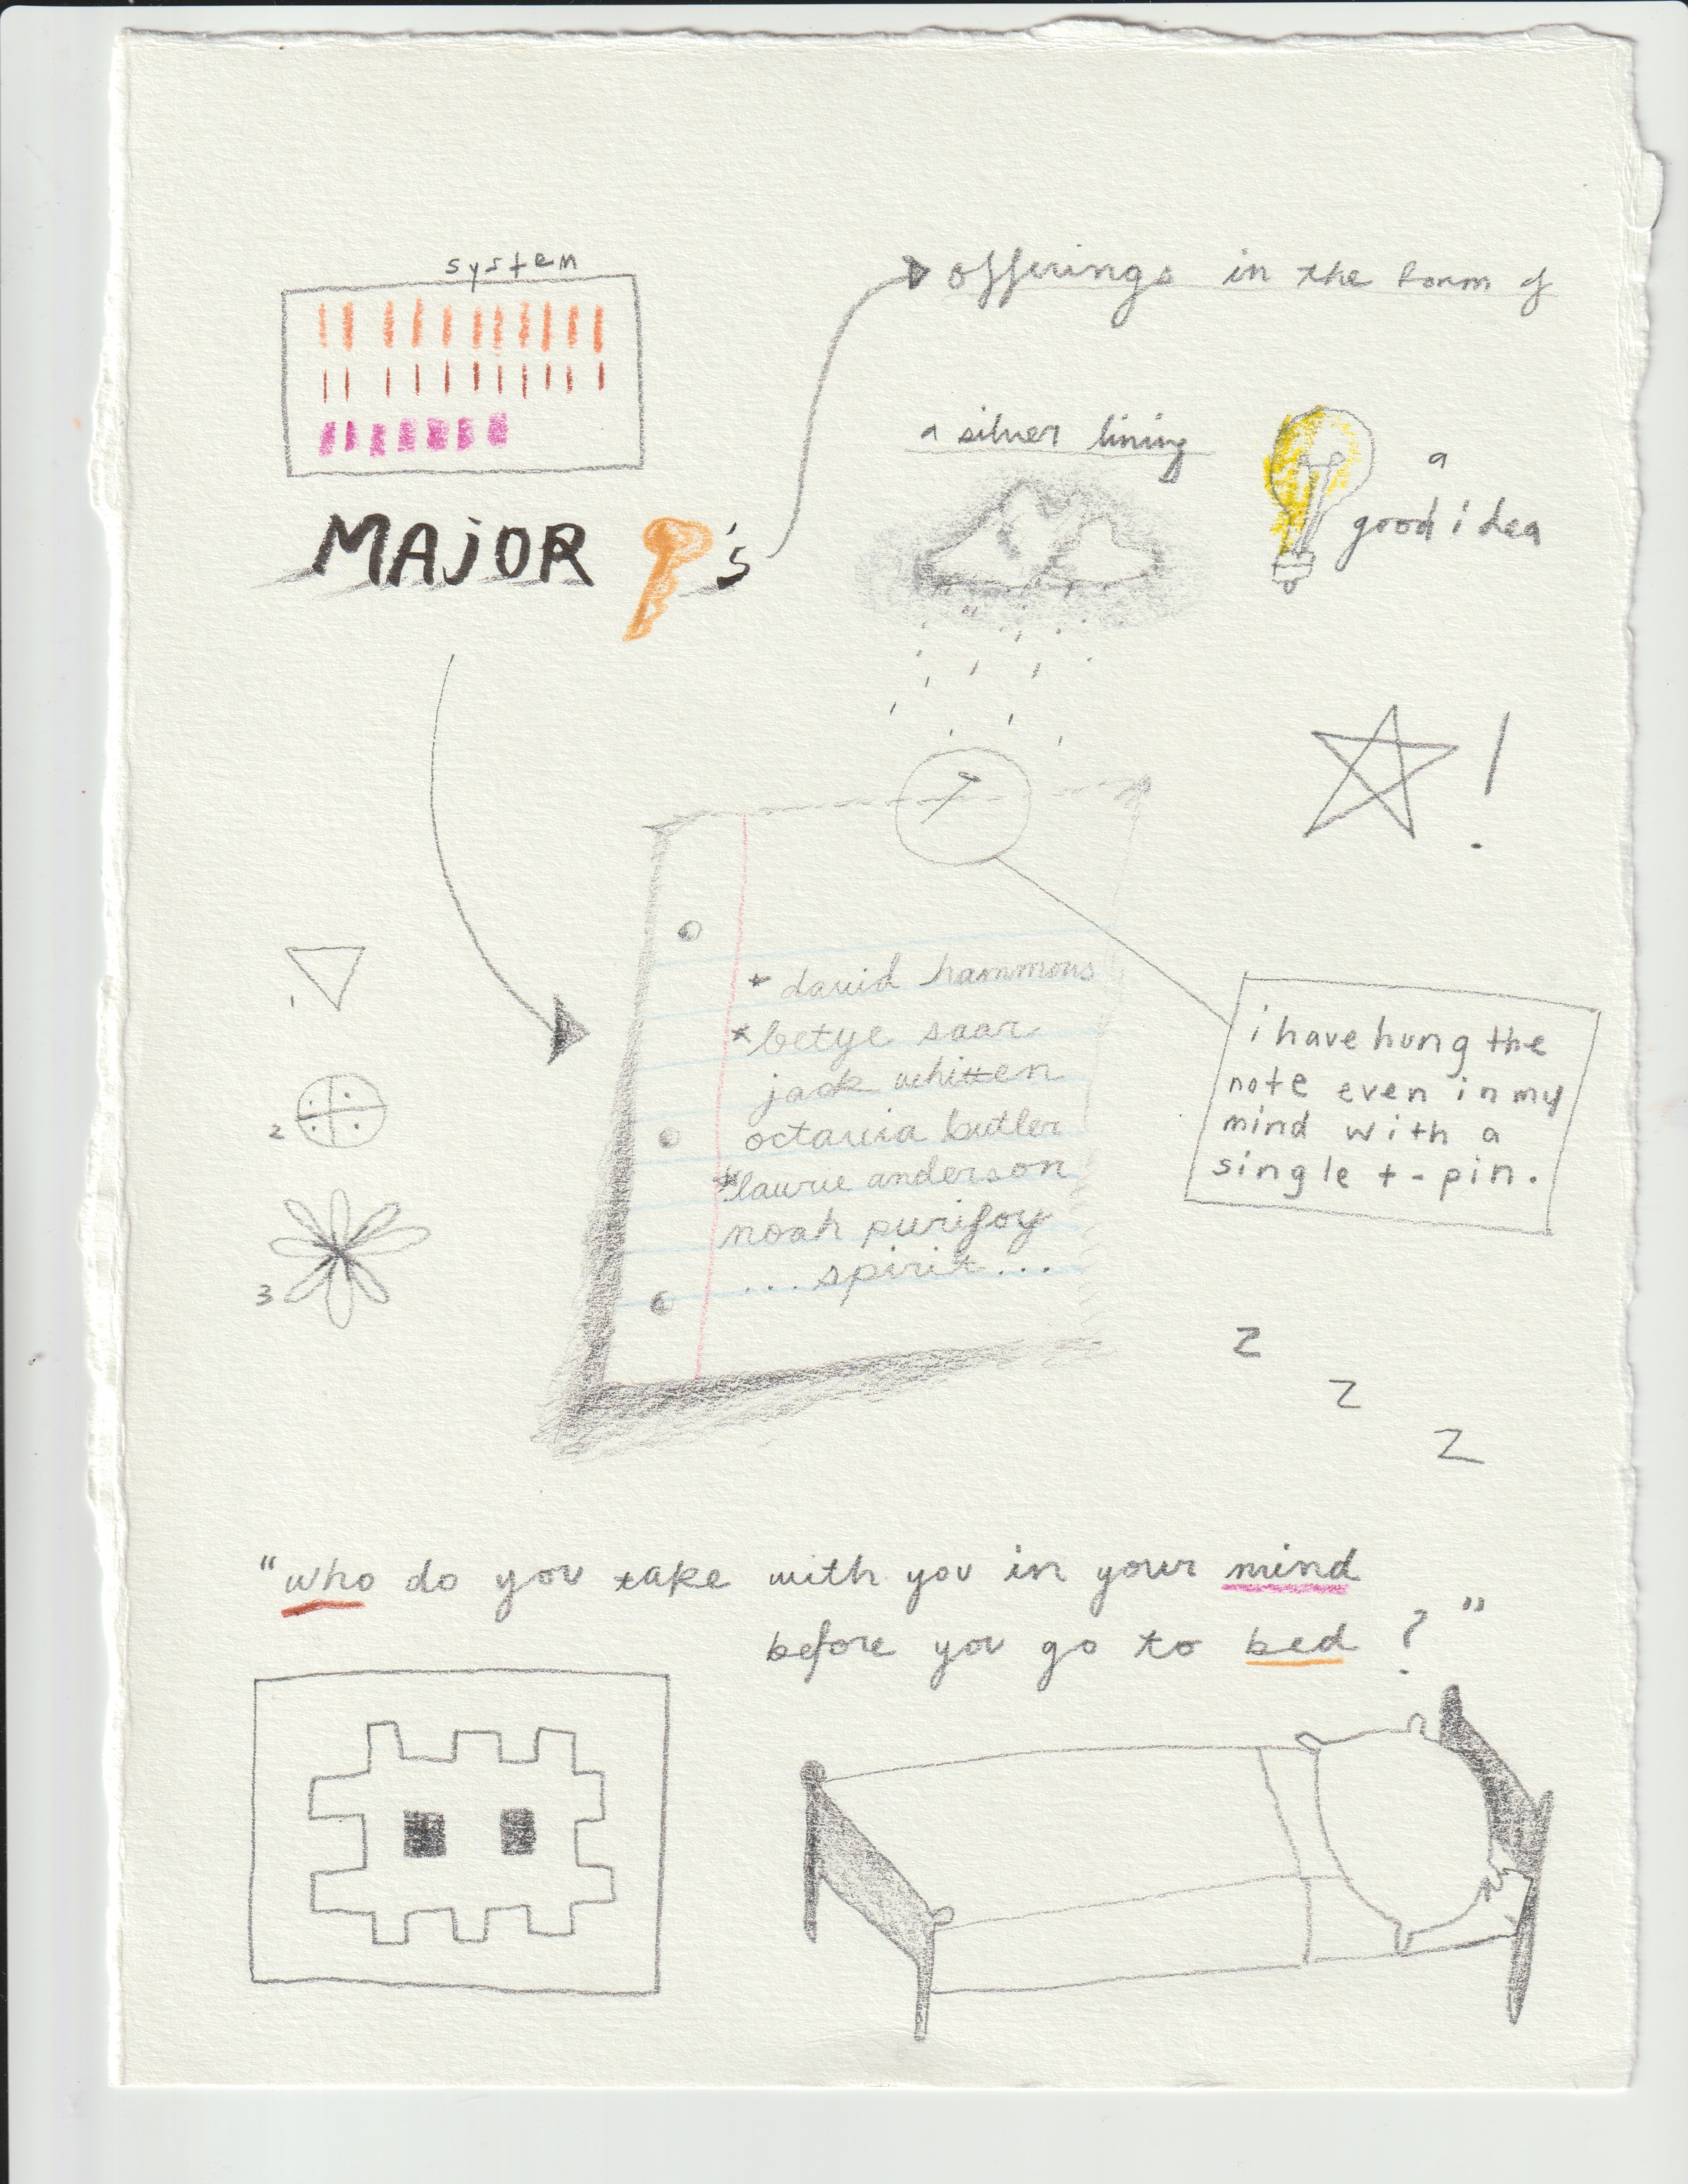 system
offerings in the form of
a silver lining
a
good idea
MAJOR 's
!
* david hammons
* betye saar
jack whitten
octavia butler
* laurie anderson
noah purifoy
... spirit ...
i have hung the
note even in my
mind with a
single t-pin.
1
2
3
z
z
z
"who do you take with you in your mind
before you go to bed?"